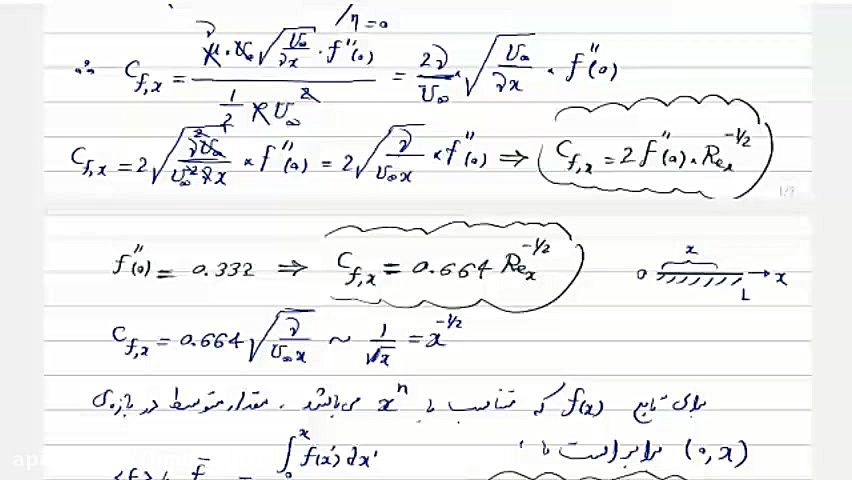 /η=0
∴ C_{f,x} = \frac{μ·U_∞ \sqrt{\frac{U_∞}{νx}} · f''(0)}{\frac{1}{2} ρ U_∞^2} = \frac{2ν}{U_∞} · \sqrt{\frac{U_∞}{νx}} · f''(0)
C_{f,x} = 2 \sqrt{\frac{ν^2 U_∞}{U_∞^2 νx}} × f''(0) = 2 \sqrt{\frac{ν}{U_∞ x}} × f''(0) ⇒ C_{f,x} = 2 f''(0) · Re_x^{-1/2}
f''(0) = 0.332 ⇒ C_{f,x} = 0.664 Re_x^{-1/2}
0 x L → x
C_{f,x} = 0.664 \sqrt{\frac{ν}{U_∞ x}} ~ \frac{1}{\sqrt{x}} = x^{-1/2}
برای تابع f(x) که متناسب با x^n می‌باشد، مقدار متوسط در بازه‌ی
(0,x) برابر است با:
\bar{f} = ∫_0^x f(x')dx'